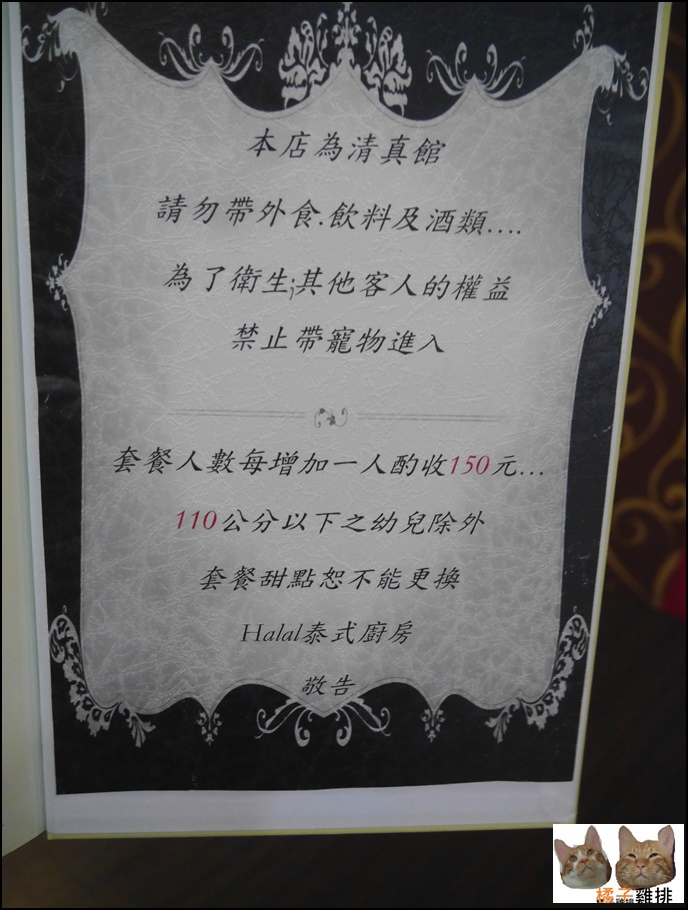 本店為清真館
請勿帶外食.飲料及酒類....
為了衛生;其他客人的權益
禁止帶寵物進入
套餐人數每增加一人酌收150元...
110公分以下之幼兒除外
套餐甜點恕不能更換
Halal泰式廚房
敬告
橘子雞排